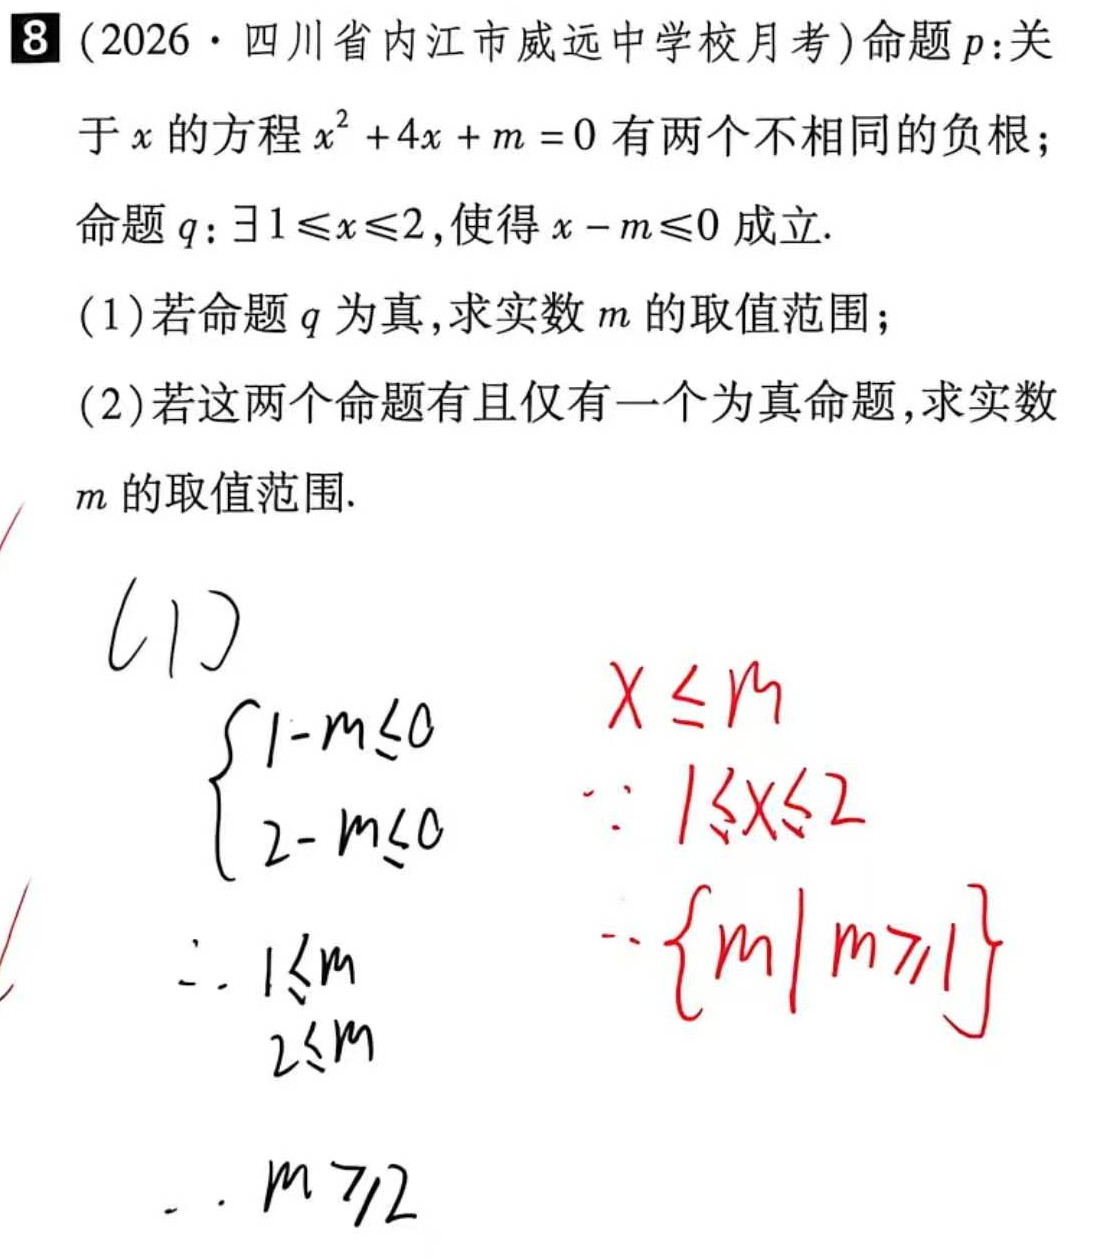 8 (2026·四川省内江市威远中学校月考)命题p:关
于x的方程x²+4x+m=0有两个不相同的负根；
命题q:∃1≤x≤2,使得x-m≤0成立.
(1)若命题q为真,求实数m的取值范围；
(2)若这两个命题有且仅有一个为真命题,求实数
m的取值范围.
(1)
{1-m≤0
2-m≤0
∴ 1≤m
2≤m
∴ m≥2
x≤m
∵ 1≤x≤2
∴ {m|m≥1}